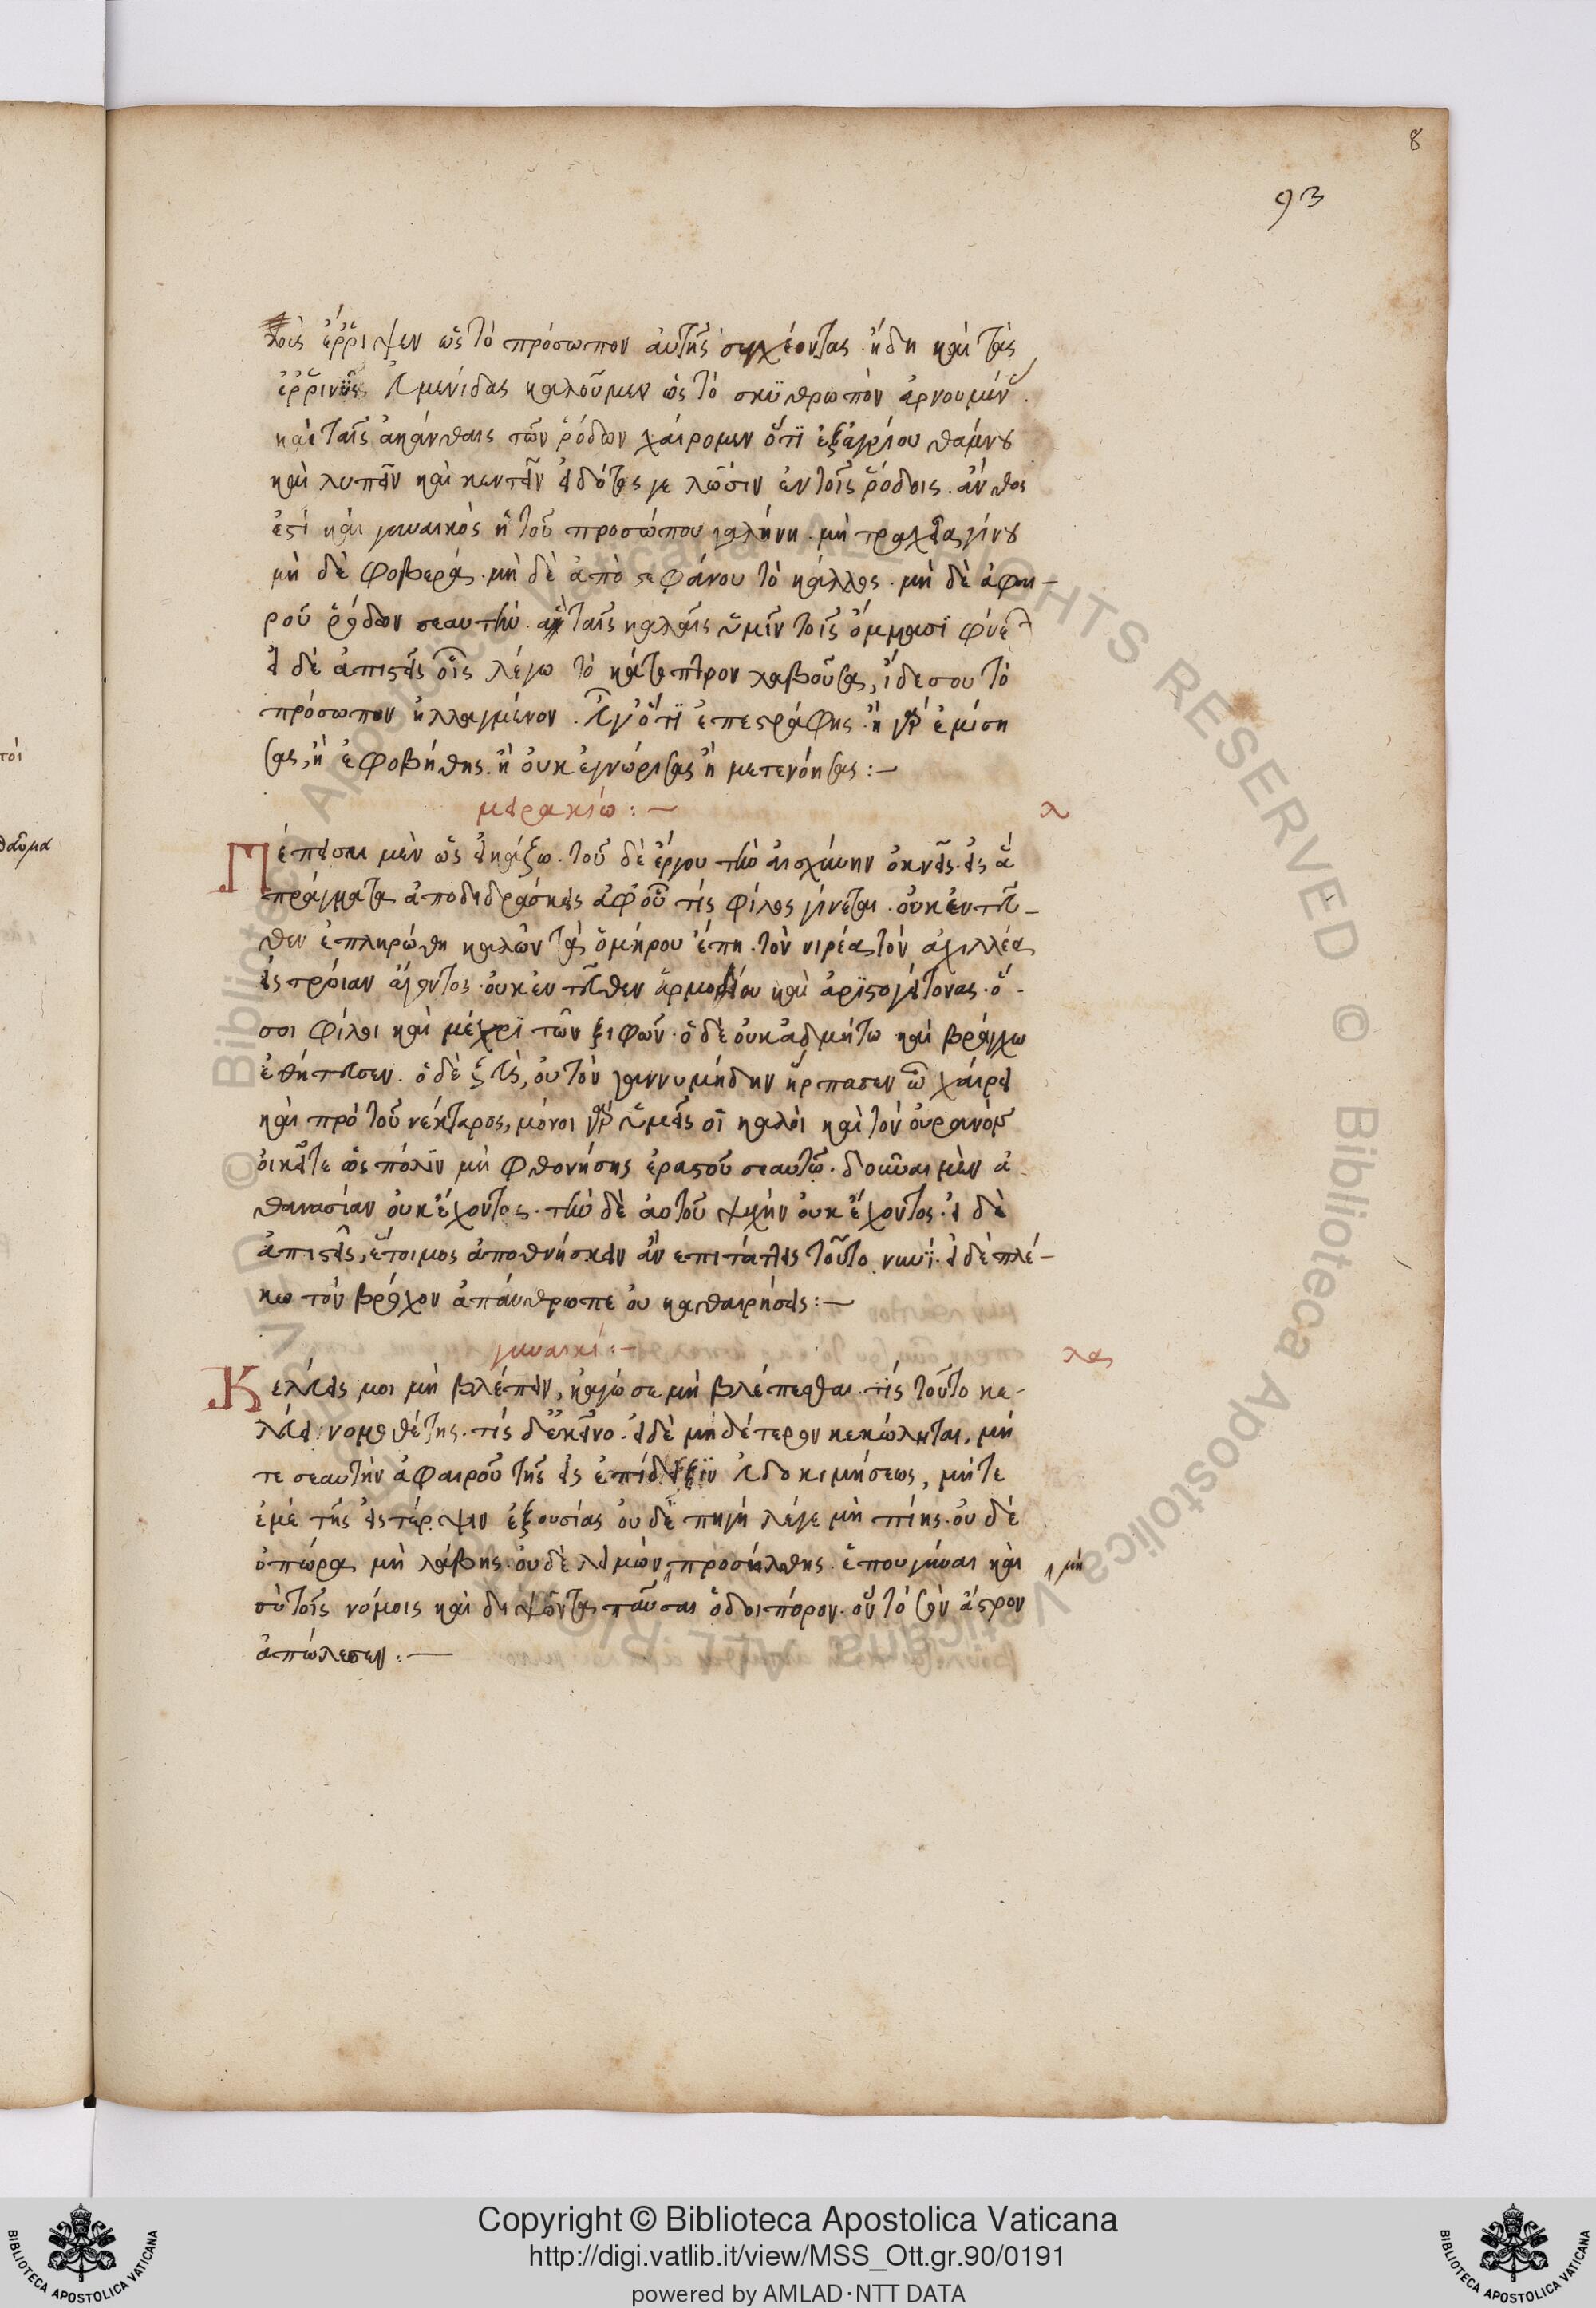 8
93
τοὺς ἔρριψεν ὡς τὸ πρόσωπον αὐτῆς συγχέοντας. ἤδη καὶ τὰς
ἐρριννῦς εὐμενίδας καλοῦμεν ὡς τὸ σκυθρωπὸν ἀρνουμέν
καὶ ταῖς ἀκάνθαις τῶν ῥόδων χαίρομεν ὅτι ἐξ ἀγρίου θάμνου
καὶ λυπεῖν καὶ κεντεῖν εἰδότος γελῶσιν ἐν τοῖς ῥόδοις. ἄνθος
ἐστὶ καὶ γυναικὸς ἡ τοῦ προσώπου γαλήνη. μὴ τραχεῖα γίνου
μὴ δὲ φοβερά. μὴ δὲ ἀποστεφάνου τὸ κάλλος. μὴ δὲ ἀφαι-
ροῦ ῥόδων σεαυτὴν ταῖς καλαῖς ὑμῖν τοῖς ὄμμασι φύεται
εἰ δὲ ἀπιστεῖς οἷς λέγω τὸ κάτοπτρον λαβοῦσα, ἴδε σου τὸ
πρόσωπον ἠλλαγμένον. εὖγ' ὅτι ἐπεστράφης. ἢ γὰρ ἐμίση
σας, ἢ ἐφοβήθης. ἢ οὐκ ἐγνώρισας ἢ μετενόησας:—
μειρακίω:— λ
Πέπεισαι μὲν ὡς εἰκάζω. τοῦ δὲ ἔργου τὴν αἰσχύνην ὀκνεῖς. εἰς ἃ
πράγματα ἀποδιδράσκεις ἀφ' οὗ τίς φίλος γίνεται. οὐκ ἐντεῦ-
θεν ἐπληρώθη καλῶν τὰ ὁμήρου ἔπη. τὸν νιρέα τὸν ἀχιλλέα
εἰς τροίαν ἄγοντος. οὐκ ἐντεῦθεν ἁρμοδίου καὶ ἀριστογείτονας. ὅ-
σοι φίλοι καὶ μέχρι τῶν ξιφῶν. ὁ δὲ οὐκ ἀδμήτω καὶ βράγχω
ἐθήτευσεν. ὁ δὲ ζεὺς, οὐ τὸν γαννυμήδην ἥρπασεν ᾧ χαίρει
καὶ πρὸ τοῦ νέκταρος, μόνοι γὰρ ὑμεῖς οἱ καλοὶ καὶ τὸν οὐρανὸν
οἰκεῖτε ὡς πόλιν μὴ φθονήσης ἐραστοῦ σεαυτῷ. δοῦναι μὲν ἀ
θανασίαν οὐκ ἔχοντος. τὴν δὲ αὐτοῦ ψυχὴν οὐκ ἔχοντος. εἰ δὲ
ἀπιστεῖς, ἕτοιμος ἀποθνήσκειν ἂν ἐπιτάττεις τοῦτο νυνί. εἰ δὲ πλέ-
κω τὸν βρόχον ἀπάνθρωπε οὐ καθαιρήσεις:—
γυναικί:— λα
Κελεύεις μοι μὴ βλέπειν, κἀγώ σε μὴ βλέπεσθαι. τίς τοῦτο κε-
λεύει νομοθέτης. τίς δ' ἐκεῖνο. εἰ δὲ μηδέτερον κεκώλυται, μή
τε σεαυτὴν ἀφαιροῦ τῆς εἰς ἐπίδειξιν εὐδοκιμήσεως, μήτε
ἐμὲ τῆς εἰς τέρψιν ἐξουσίας οὐδὲ πηγὴ λέγε μὴ πίης. οὐδὲ
ὀπώρα μὴ λάβης. οὐδὲ λειμὼν προσέλθης. ἕπου γύναι καὶ μὴ
σὺ τοῖς νόμοις καὶ διψῶντα παῦσαι ὁδοιπόρον. οὗ τὸ σὸν ἄστρον
ἀπώλεσεν:—
τοί
θαῦμα
Copyright © Biblioteca Apostolica Vaticana
http://digi.vatlib.it/view/MSS_Ott.gr.90/0191
powered by AMLAD·NTT DATA